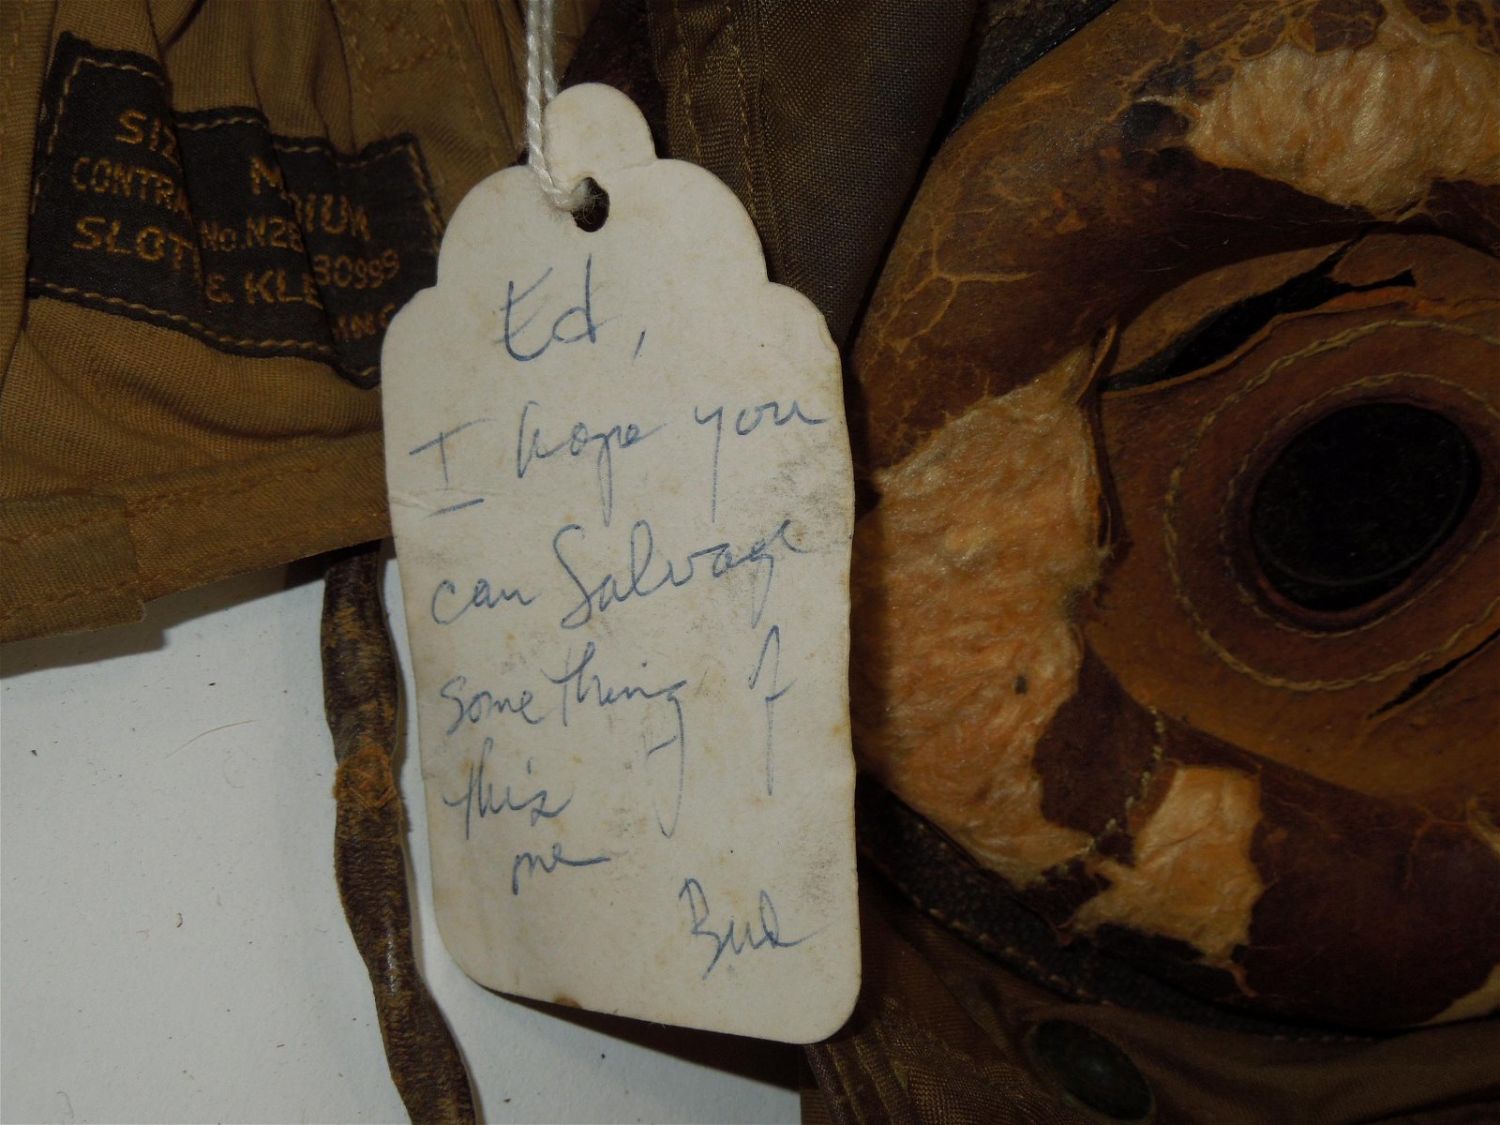 SIZE MEDIUM
CONTRA No. N28 80999
SLOT & KLE ING
Ed,
I hope you
can Salvage
something of
this
one
Bud